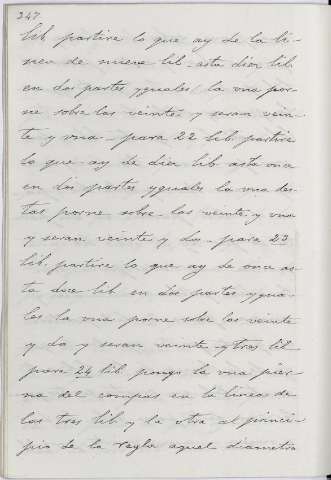 247
lib. partire lo que ay de la li-
nea de nueve lib. asta diez lib.
en dos partes yguales/ la vna por-
ne sobre los veinte y seran vein-
te y vna - para 22 lib. partire
lo que ay de diez lib. asta once
en dos partes yguales la vna des-
tas porne sobre los veinte y vna
y seran veinte y dos - para 23
lib. partire lo que ay de once as-
ta doce lib en dos partes ygua-
les la vna porne sobre los veinte
y dos y seran veinte y tres lib
para 24 lib. pongo la vna pier-
na del compas en la linea de
los tres lib y la otra al princi-
pio de la regla aquel diametro